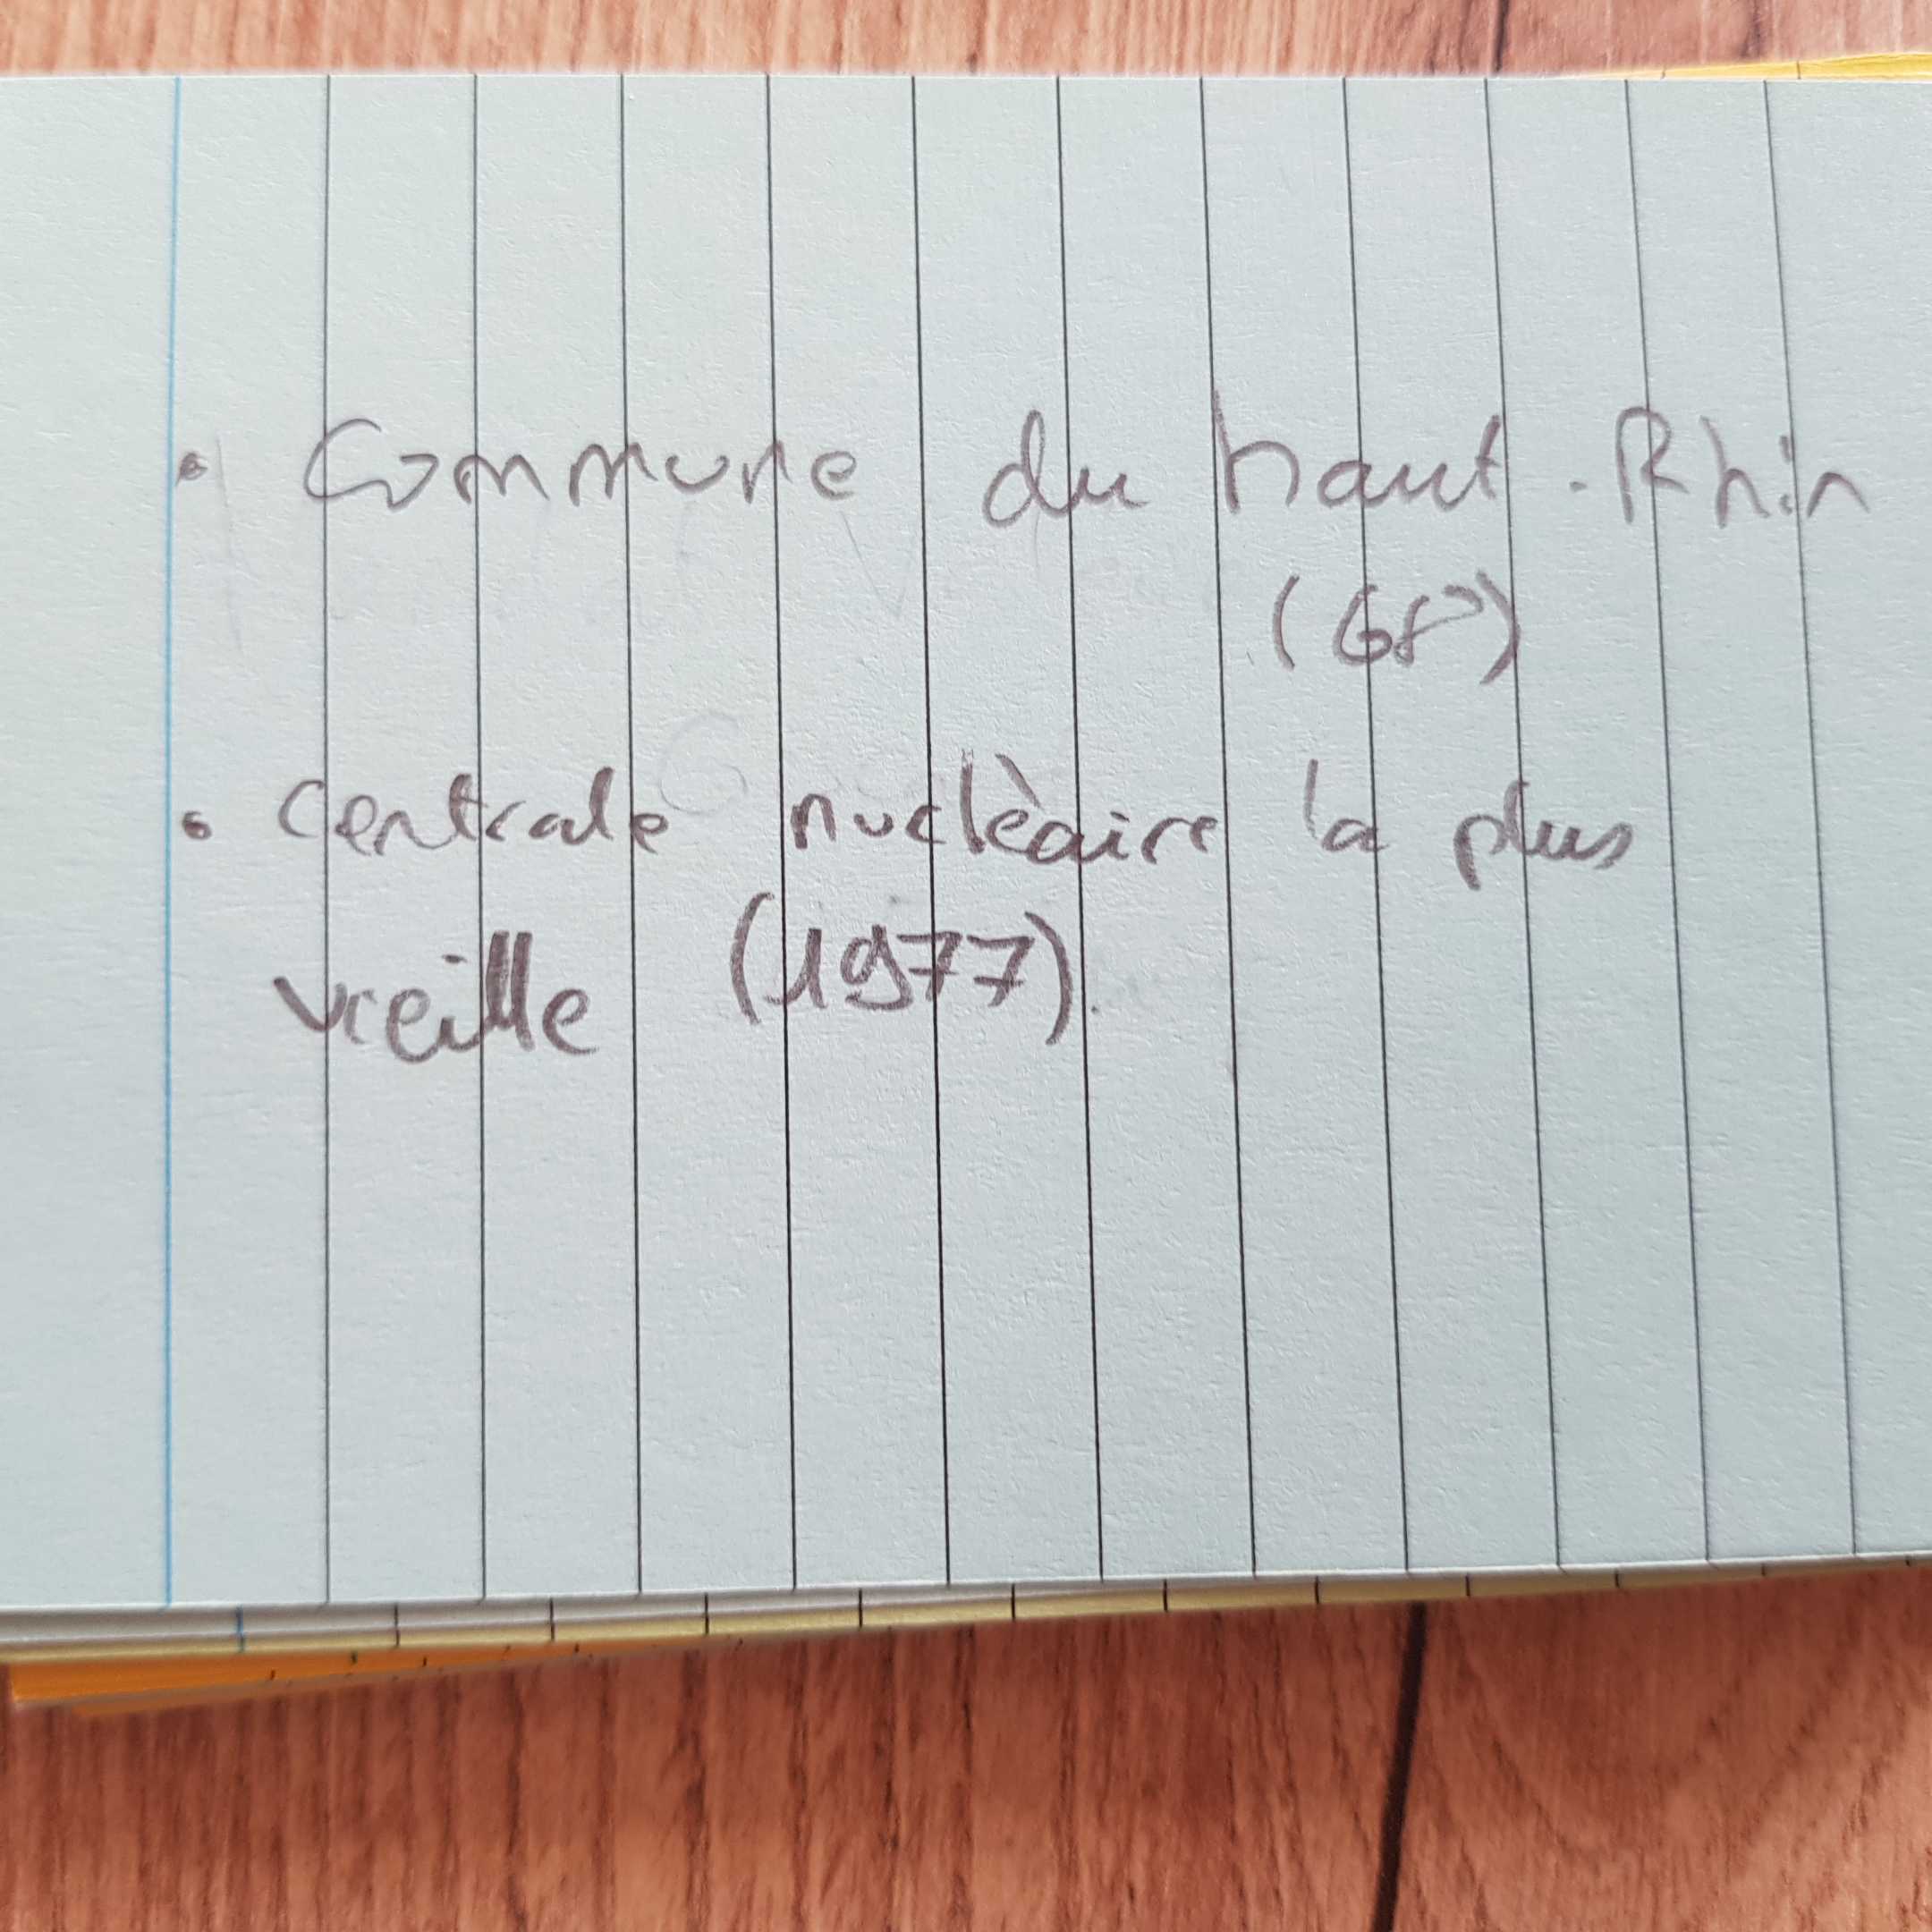 • Commune du haut-Rhin
(68)
• Centrale nuclèaire la plus
vieille (1977).